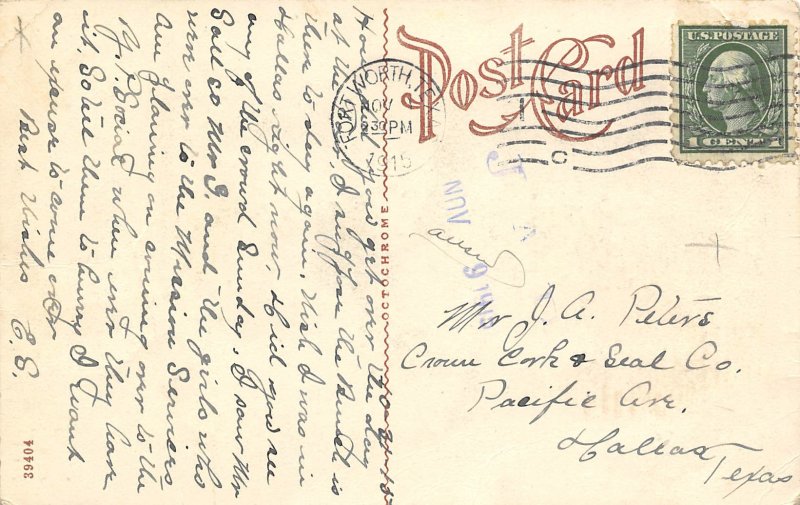 Post Card
U.S. POSTAGE
1 CENT 1
FORT WORTH, TEX
NOV
230 PM
1915
NOV 6 1915
answ
OCTOCHROME
39404
How did you get over the day
at the fair, I suppose the bunch is
there to day again, Wish I was in
Dallas right now, Did you see
any of the crowd Sunday, I saw Mr
Gall so Mr S. and the girls who
were over to the Mission Services
Am planing on coming over to the
B.Y.P. Social when ever they have
it, So tell them to hurry I want
an excuse to come over
Best Wishes C.S.
Mr J. A. Peters
Crown Cork & Seal Co.
Pacific Ave.
Dallas
Texas